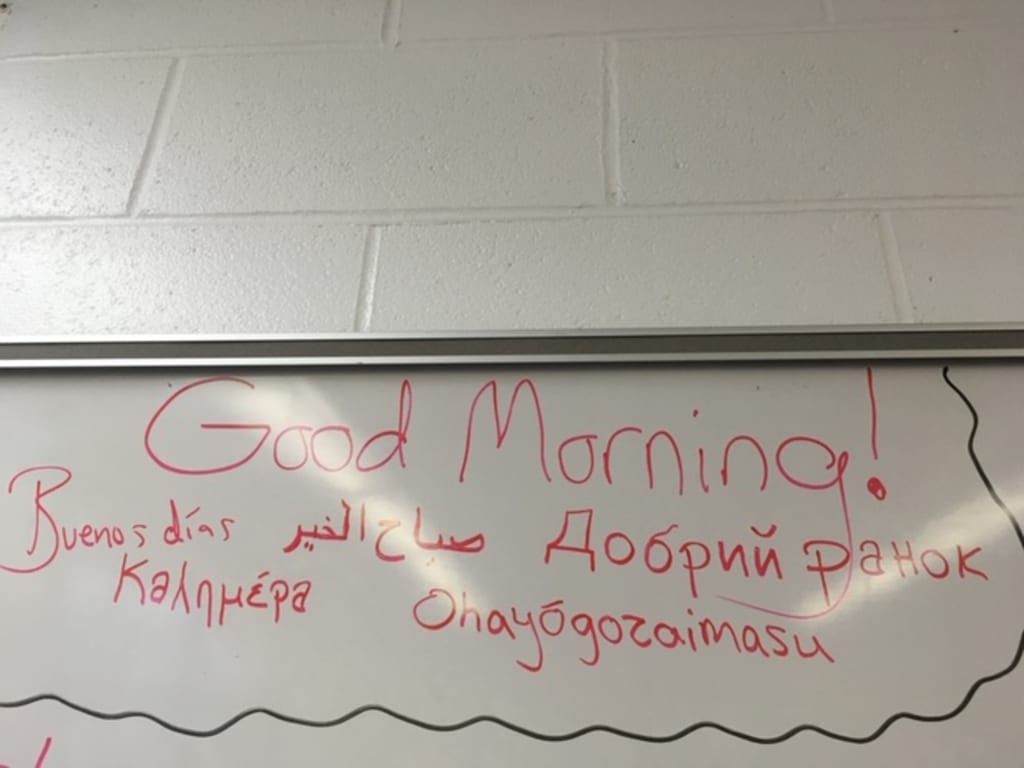 Good Morning!
Buenos días صباح الخير Добрий ранок
Καλημέρα Ohayōgozaimasu